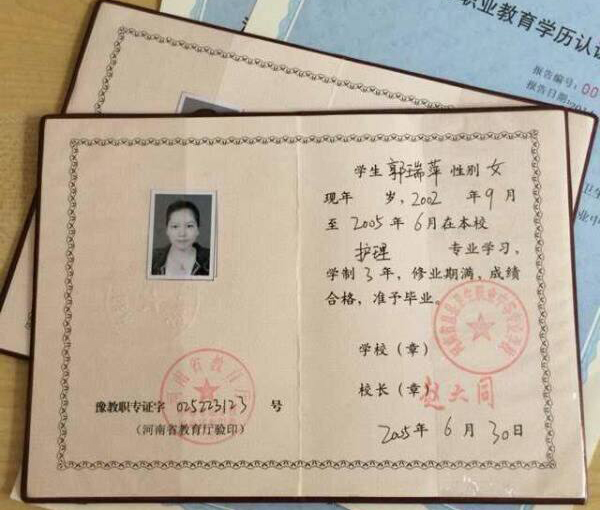 职业教育学历认证
报告编号：00
报告日期：
学生 郭瑞萍 性别 女
现年 岁，2002 年 9 月
至 2005 年 6 月在本校
护理 专业学习，
学制 3 年，修业期满，成绩
合格，准予毕业。
学校（章）
校长（章） 赵大同
2005 年 6 月 30 日
河南省教育厅
豫教职专证字 025223123 号
（河南省教育厅验印）